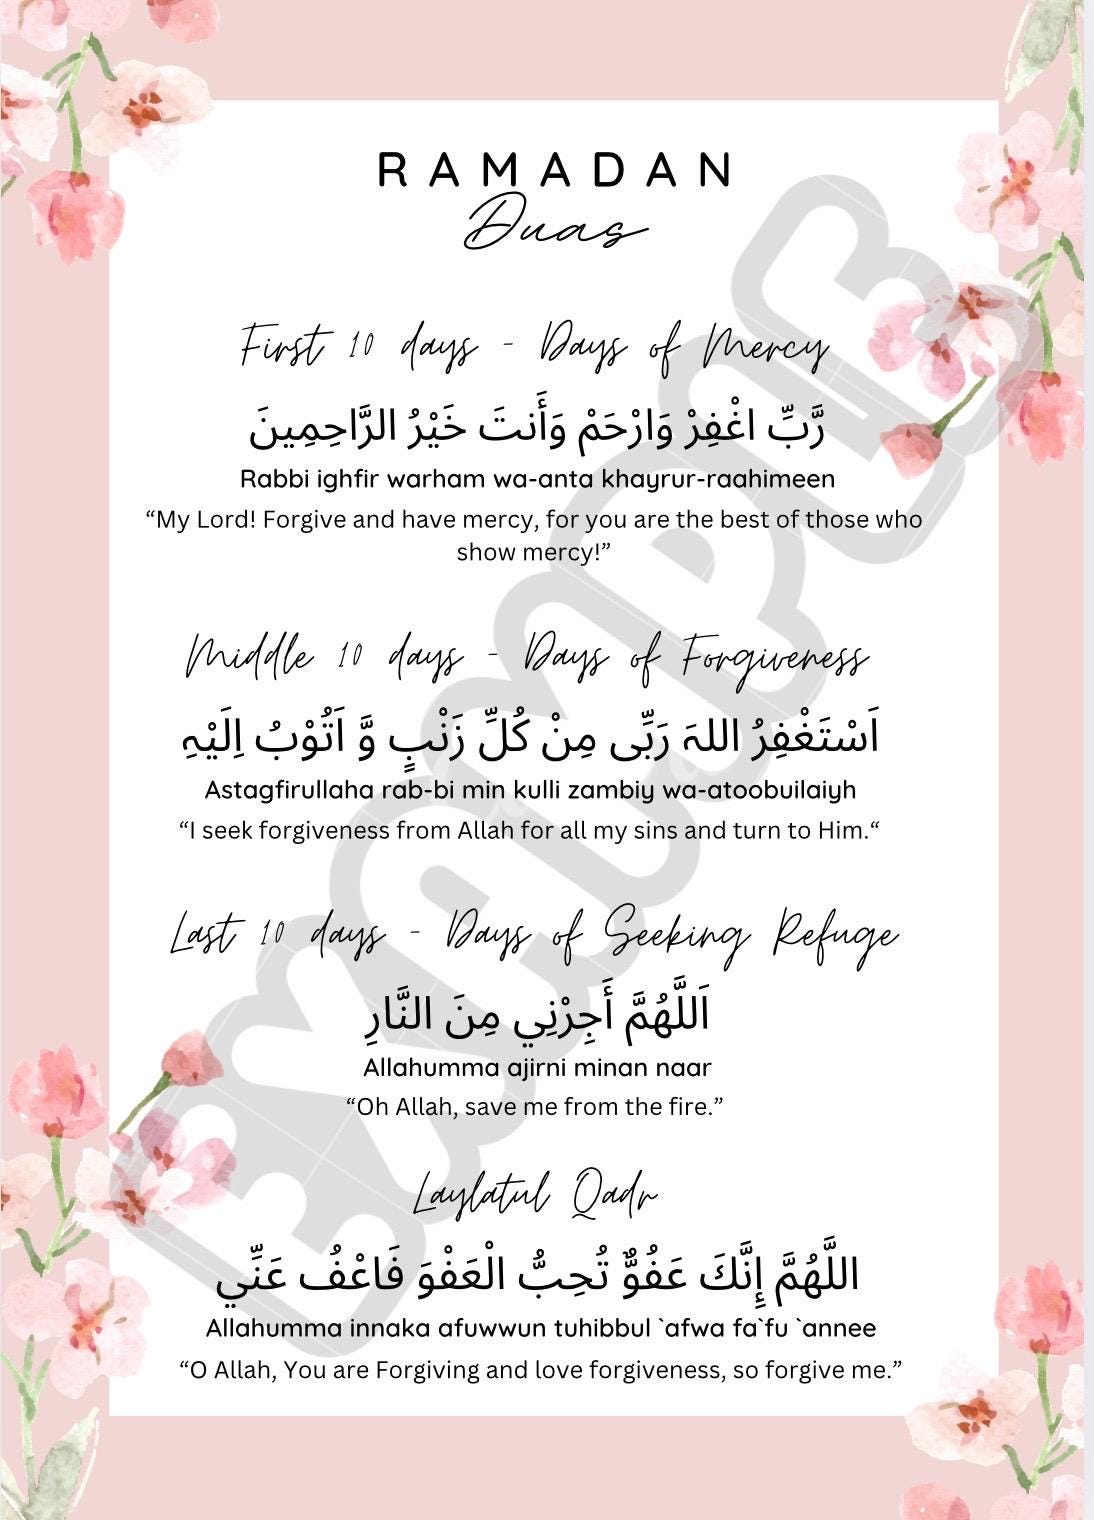 RAMADAN
Duas
First 10 days - Days of Mercy
رَّبِّ اغْفِرْ وَارْحَمْ وَأَنتَ خَيْرُ الرَّاحِمِينَ
Rabbi ighfir warham wa-anta khayrur-raahimeen
“My Lord! Forgive and have mercy, for you are the best of those who
show mercy!”
Middle 10 days - Days of Forgiveness
اَسْتَغْفِرُ اللہَ رَبِّی مِنْ کُلِّ زَنْبٍ وَّ اَتُوْبُ اِلَیْہِ
Astagfirullaha rab-bi min kulli zambiy wa-atoobuilaiyh
“I seek forgiveness from Allah for all my sins and turn to Him.“
Last 10 days - Days of Seeking Refuge
اَللَّهُمَّ أَجِرْنِي مِنَ النَّارِ
Allahumma ajirni minan naar
“Oh Allah, save me from the fire.”
Laylatul Qadr
اللَّهُمَّ إِنَّكَ عَفُوٌّ تُحِبُّ الْعَفْوَ فَاعْفُ عَنِّي
Allahumma innaka afuwwun tuhibbul `afwa fa`fu `annee
“O Allah, You are Forgiving and love forgiveness, so forgive me.”